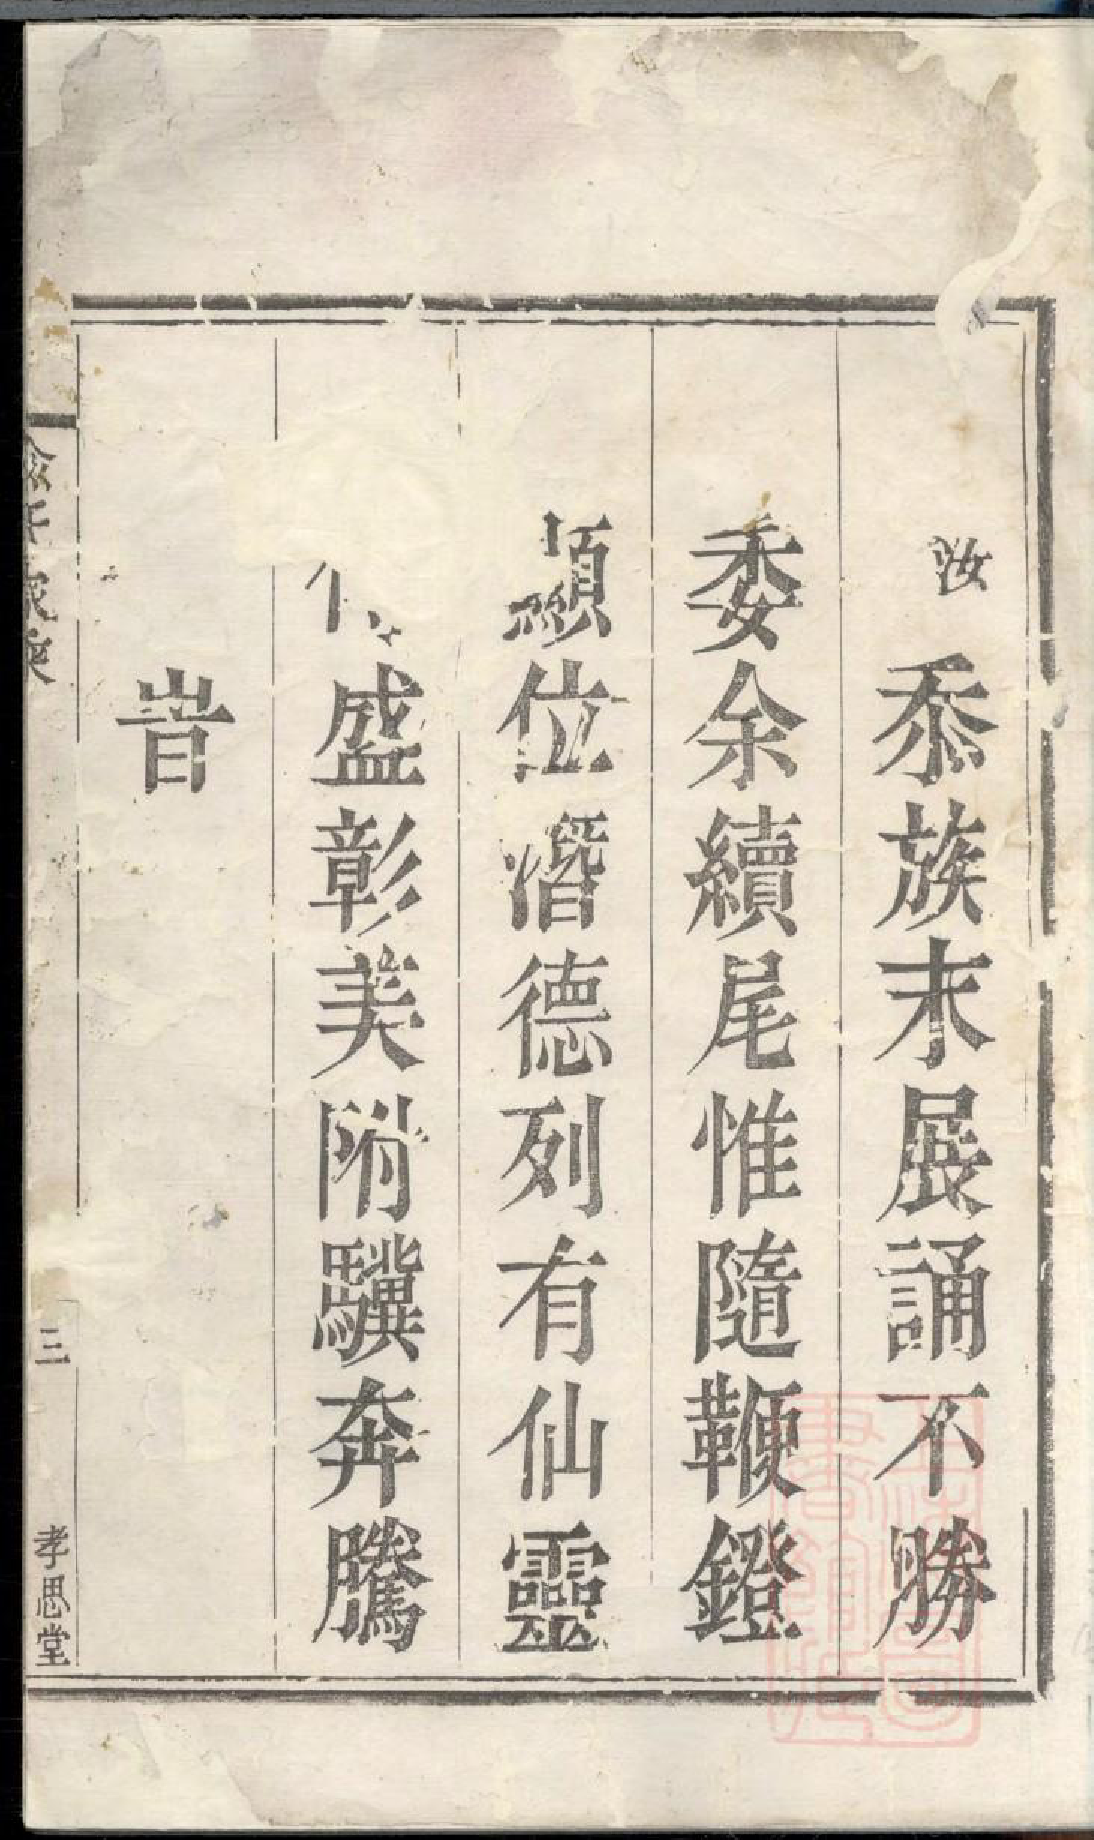 汝忝族末展誦不勝
委余續尾惟隨鞭鐙
顯位潛德列有仙靈
盛彰美附驥奔騰
旹
三
孝思堂